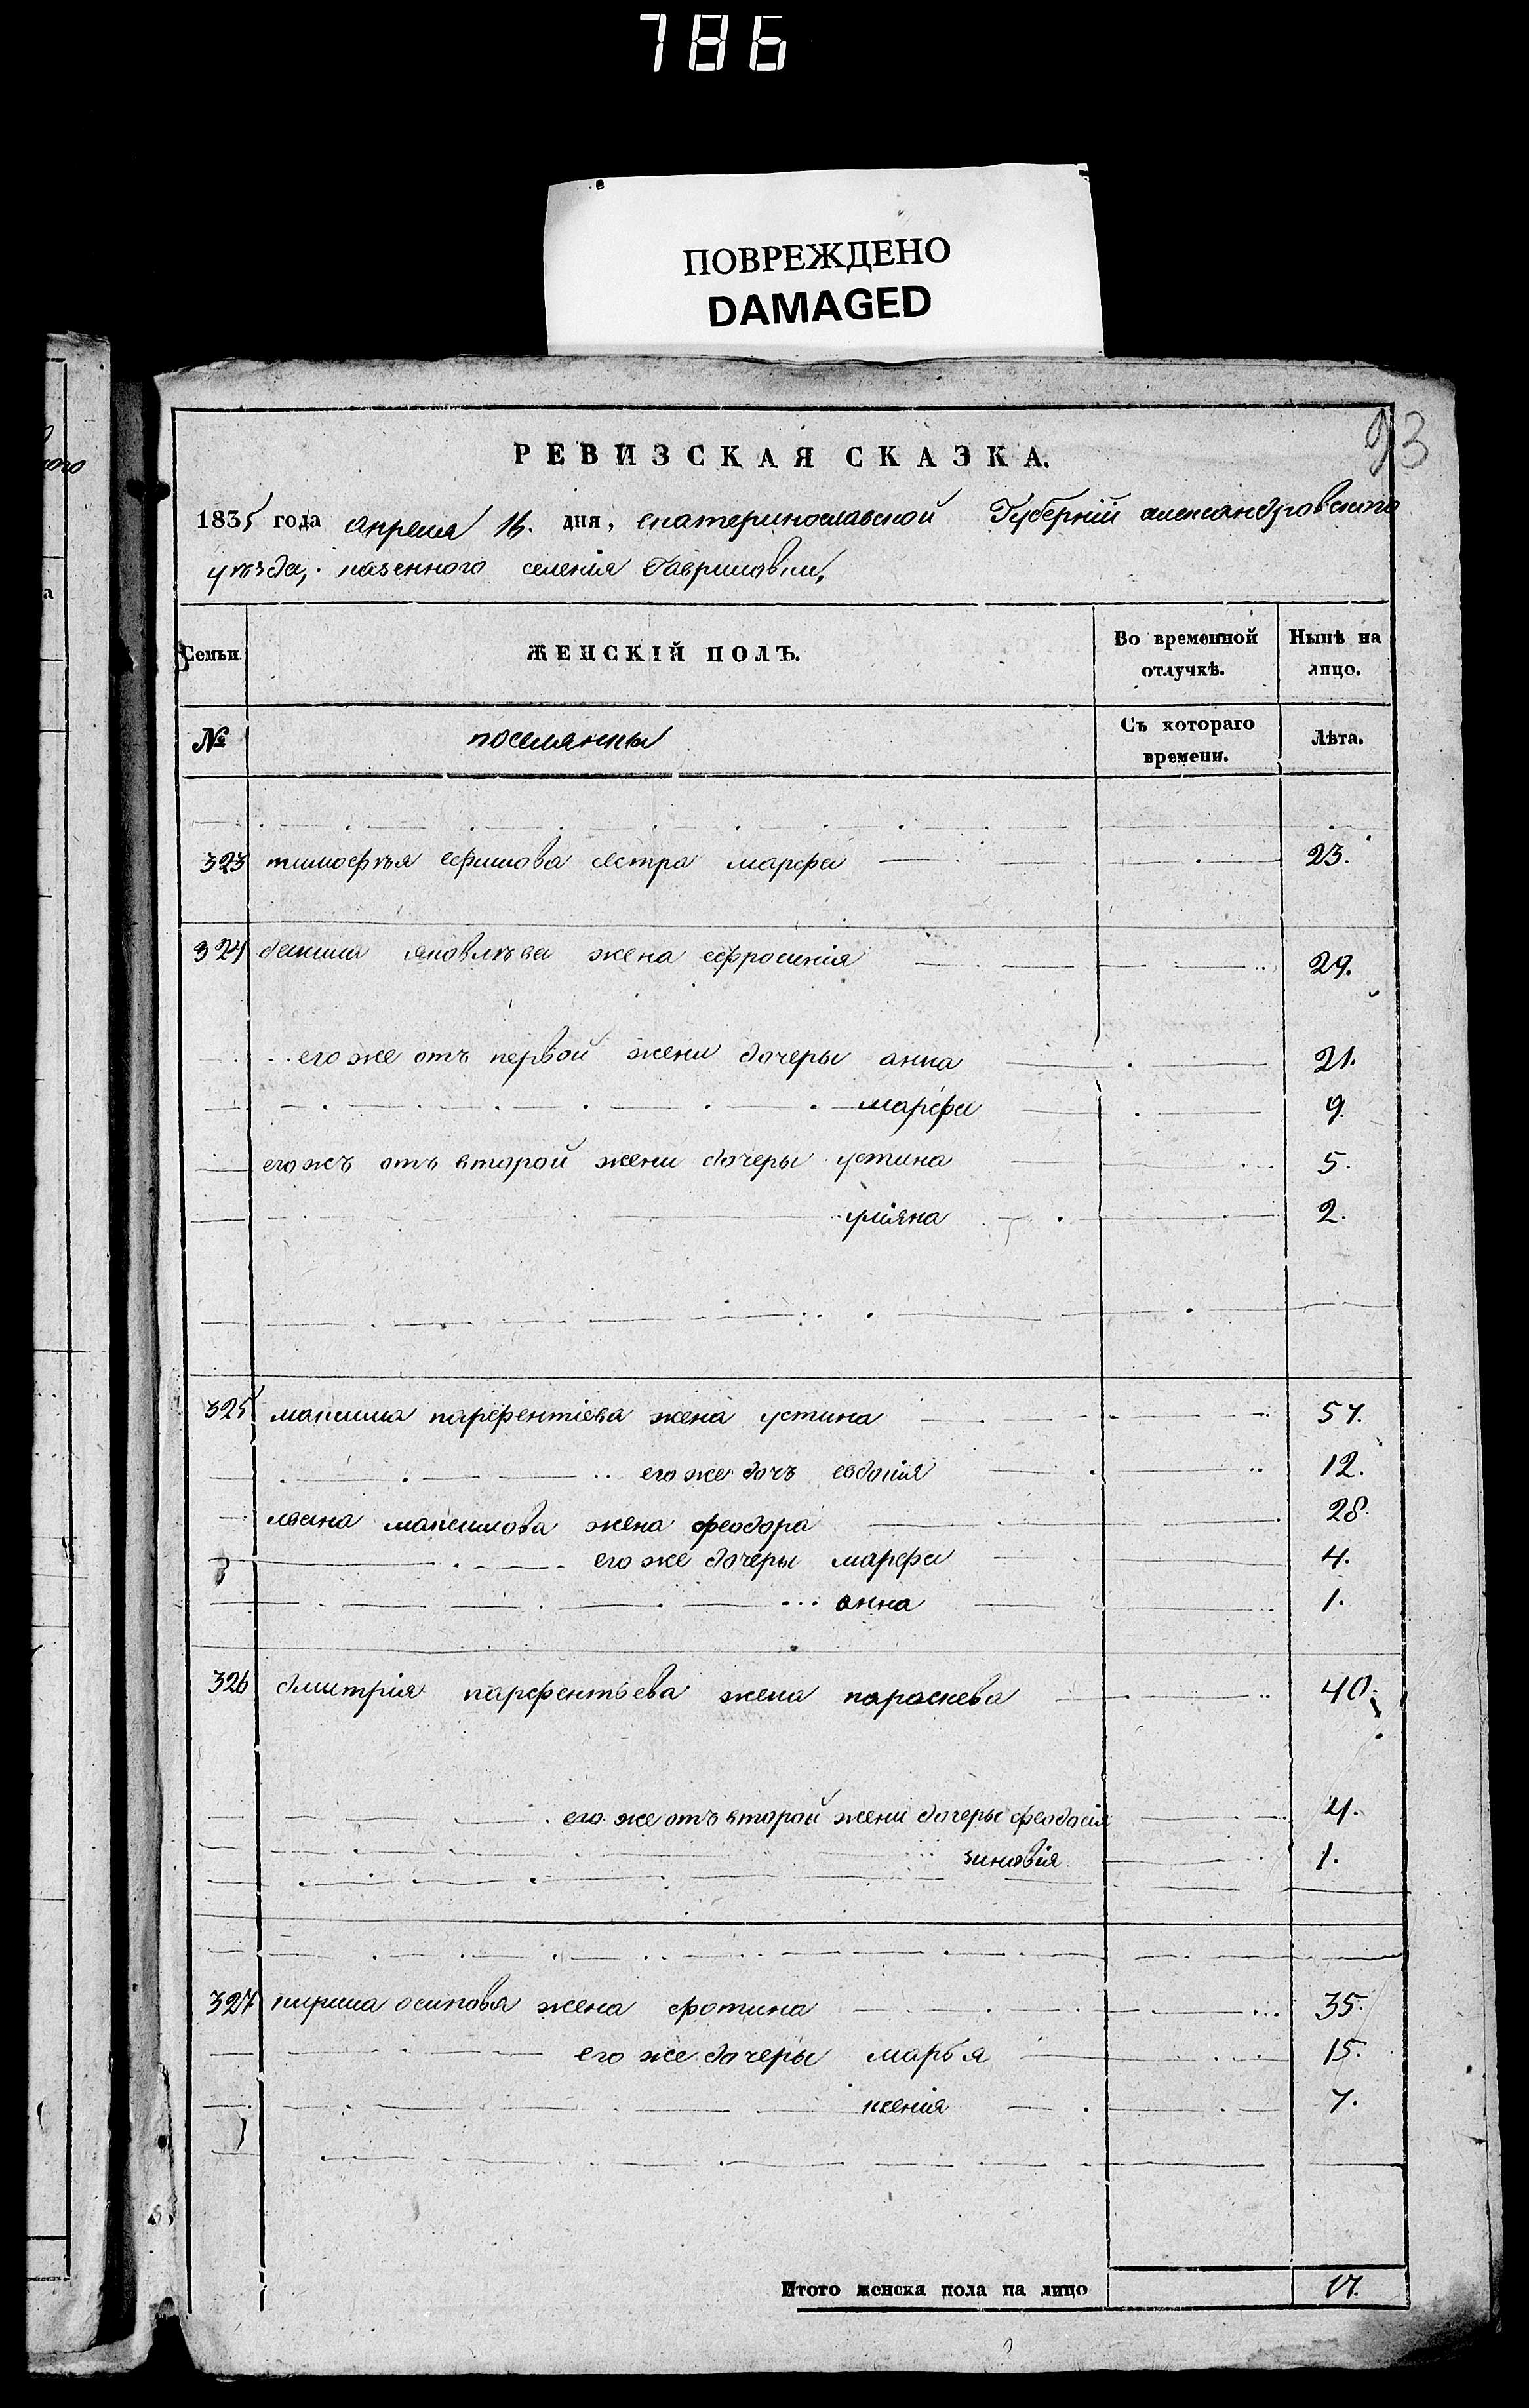 786
ПОВРЕЖДЕНО
DAMAGED
93
РЕВИЗСКАЯ СКАЗКА.
1835 года апреля 16. дня, екатеринославской Губерніи александровского
уѣзда, казенного селенія Гавриловки,
Семьи ЖЕНСКІЙ ПОЛЪ. Во временной отлучкѣ. Нынѣ на лицо.
№ поселянки Съ котораго времени. Лѣта.
323 тимофѣя ефимова сестра марфа 23.
324 яковлѣва жена ефросинія 29.
его же отъ первой жени дочеры анна 21.
марфа 9.
его жъ отъ второй жени дочеры устина 5.
уліяна 2.
325 максима парфентіева жена устина 57.
его же дочъ евдокія 12.
ивана максимова жена феодора 28.
его же дочеры марфа 4.
анна 1.
326 дмитрія парфентьева жена параскева 40.
его же отъ второй жени дочеры феодосія 4.
зиновія 1.
327 кирила осипова жена фотина 35.
его же дочеры марья 15.
ксенія 7.
Итого женска пола на лицо 17.